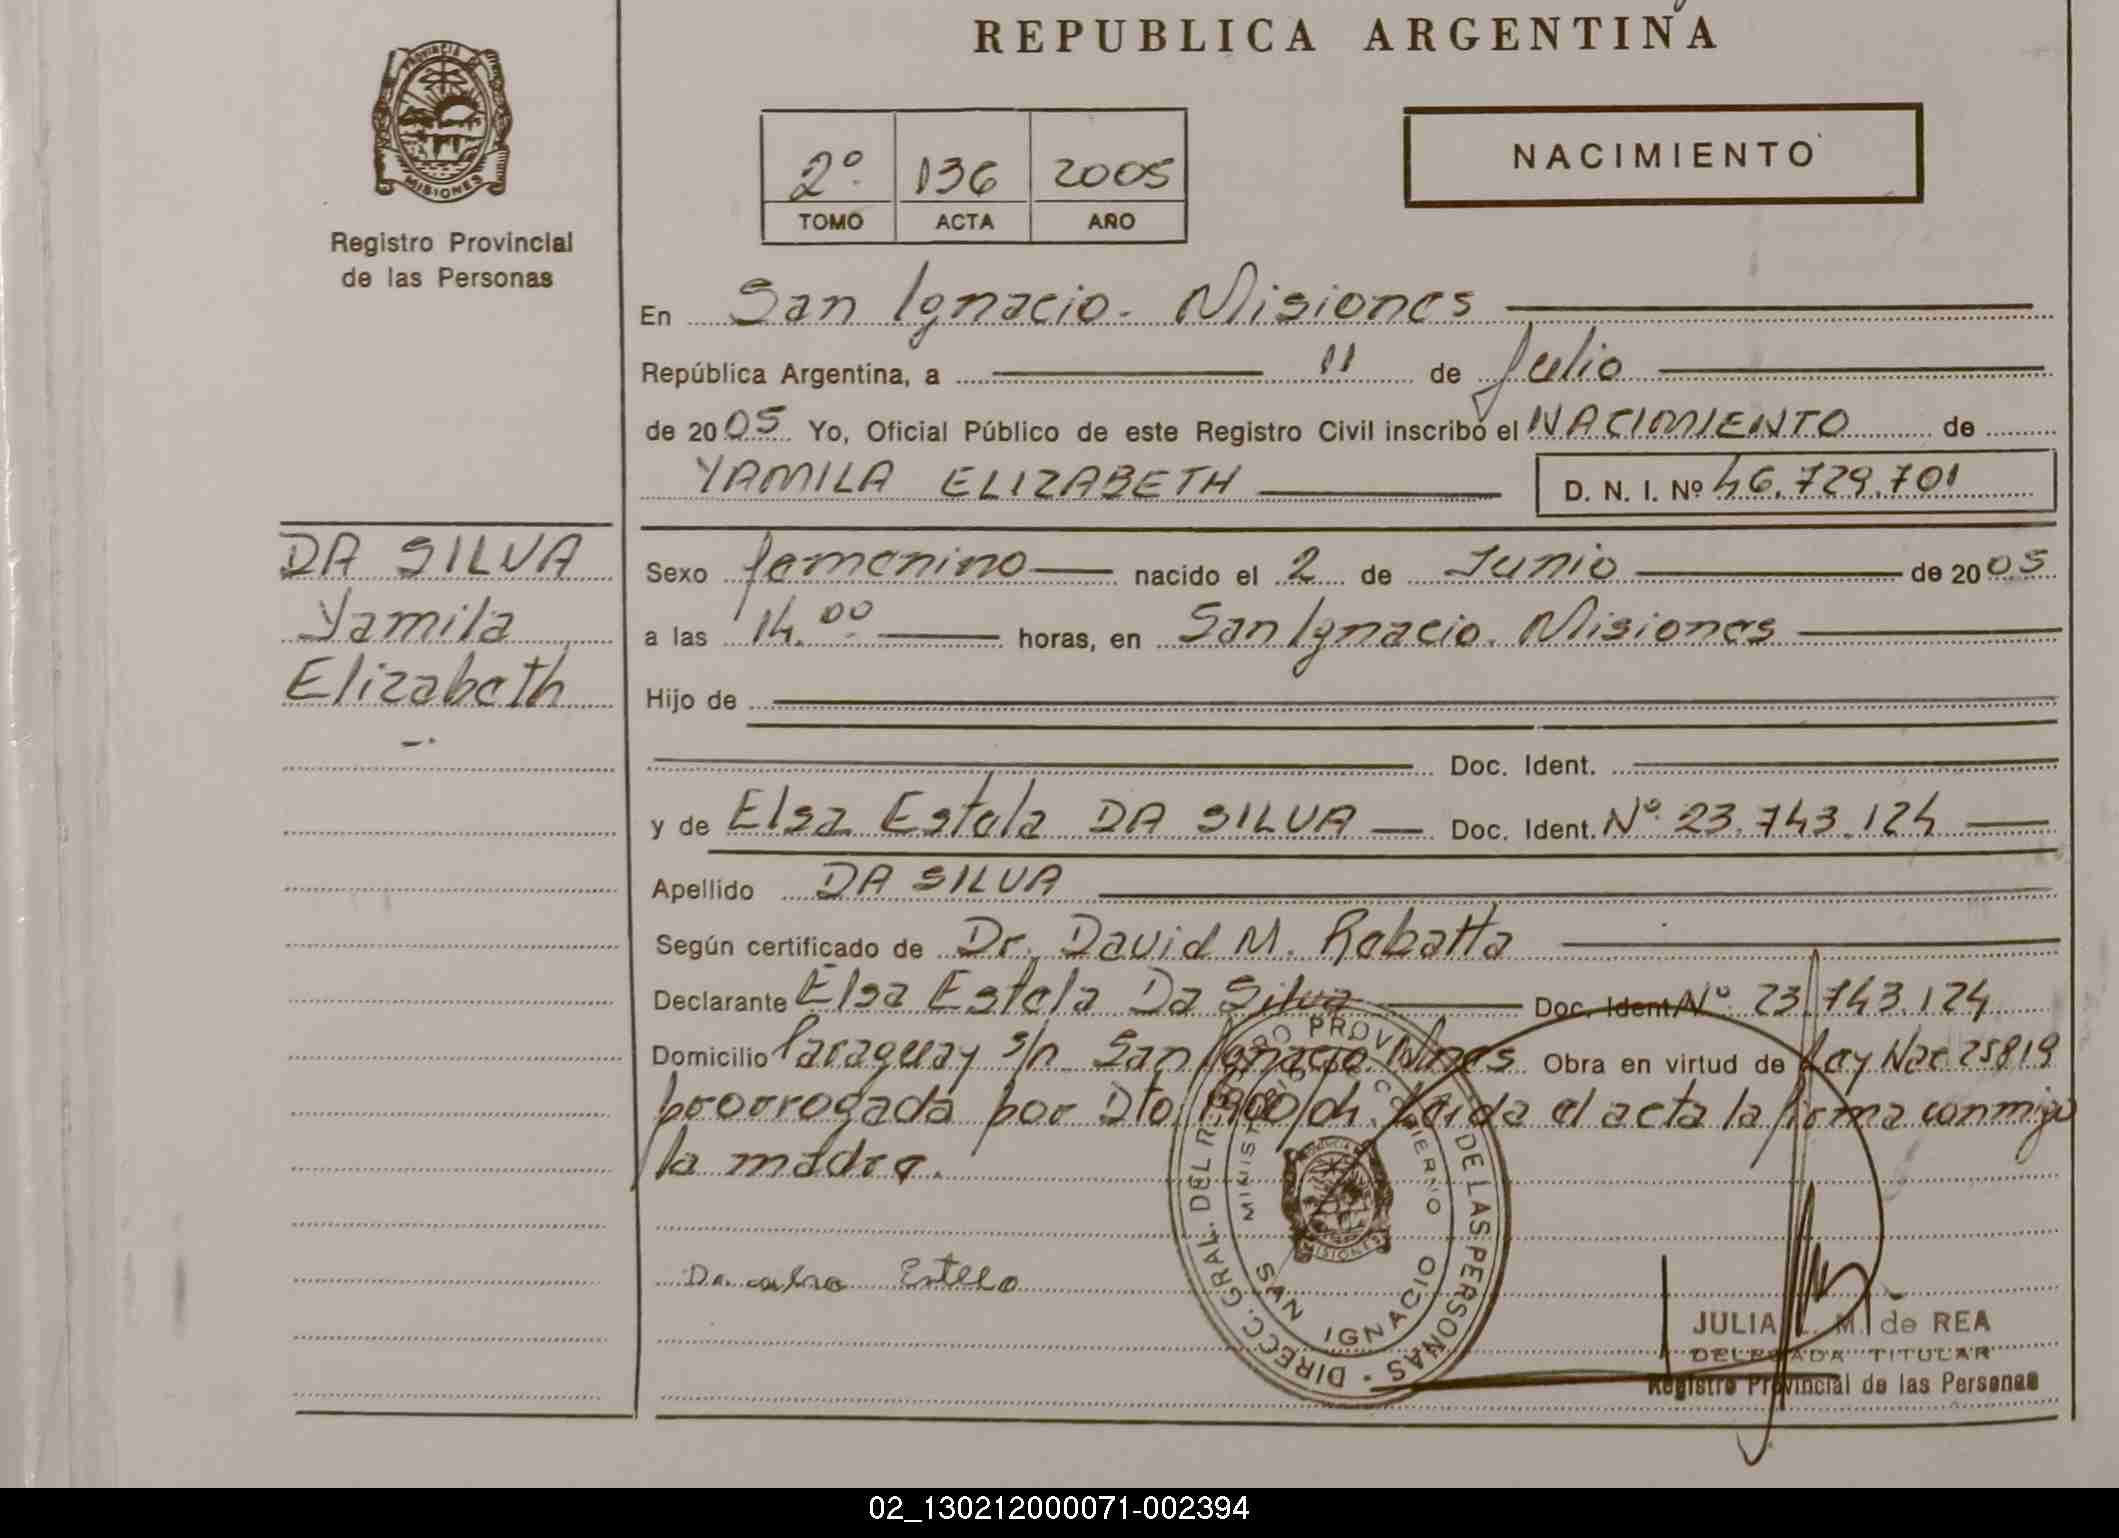 REPUBLICA ARGENTINA
PROVINCIA DE MISIONES
Registro Provincial
de las Personas
2º 136 2005
TOMO ACTA AÑO
NACIMIENTO
En San Ignacio - Misiones
República Argentina, a 11 de Julio
de 2005 Yo, Oficial Público de este Registro Civil inscribo el NACIMIENTO de
YAMILA ELIZABETH D. N. I. Nº 46.729.701
DA SILVA
Yamila
Elizabeth
Sexo femenino nacido el 2 de Junio de 2005
a las 14.00 horas, en San Ignacio. Misiones
Hijo de
Doc. Ident.
y de Elsa Estela DA SILVA Doc. Ident. Nº 23.743.124
Apellido DA SILVA
Según certificado de Dr. David M. Rabatta
Declarante Elsa Estela Da Silva Doc. Ident. Nº 23.743.124
Domicilio Paraguay s/n San Ignacio Mnes. Obra en virtud de Ley Nac 25819
prorrogada por Dto. 1900/04. Leida el acta la firma conmigo
la madre.
Estela
DIRECC. GRAL. DEL REGISTRO PROVINCIAL DE LAS PERSONAS
MINISTERIO DE GOBIERNO
MISIONES
SAN IGNACIO
JULIA L. M. de REA
DELEGADA TITULAR
Registro Provincial de las Personas
02_130212000071-002394